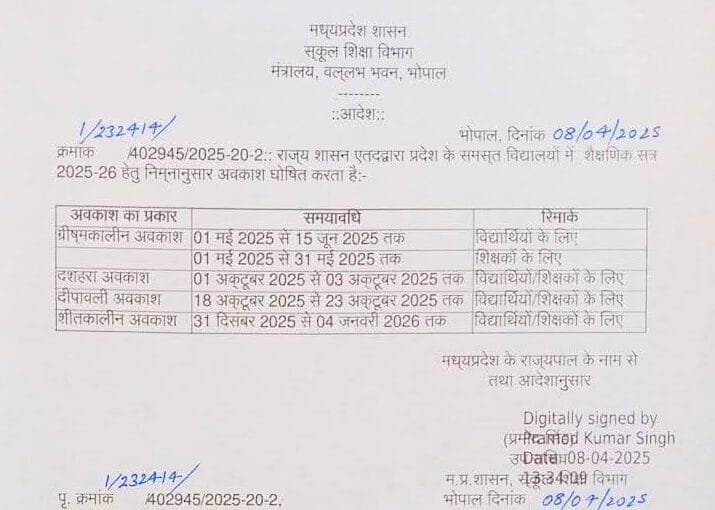 मध्यप्रदेश शासन
स्कूल शिक्षा विभाग
मंत्रालय, वल्लभ भवन, भोपाल
--------
::आदेश::
1/232414/
भोपाल, दिनांक 08/04/2025
क्रमांक /402945/2025-20-2:: राज्य शासन एतदद्वारा प्रदेश के समस्त विद्यालयों में शैक्षणिक सत्र
2025-26 हेतु निम्नानुसार अवकाश घोषित करता है:-
अवकाश का प्रकार समयावधि रिमार्क
ग्रीष्मकालीन अवकाश 01 मई 2025 से 15 जून 2025 तक विद्यार्थियों के लिए
01 मई 2025 से 31 मई 2025 तक शिक्षकों के लिए
दशहरा अवकाश 01 अक्टूबर 2025 से 03 अक्टूबर 2025 तक विद्यार्थियों/शिक्षकों के लिए
दीपावली अवकाश 18 अक्टूबर 2025 से 23 अक्टूबर 2025 तक विद्यार्थियों/शिक्षकों के लिए
शीतकालीन अवकाश 31 दिसबर 2025 से 04 जनवरी 2026 तक विद्यार्थियों/शिक्षकों के लिए
मध्यप्रदेश के राज्यपाल के नाम से
तथा आदेशानुसार
Digitally signed by
Pramod Kumar Singh
Date: 08-04-2025
13:34:09
म.प्र.शासन, स्कूल शिक्षा विभाग
1/232414/
पृ. क्रमांक /402945/2025-20-2,
भोपाल दिनांक 08/04/2025